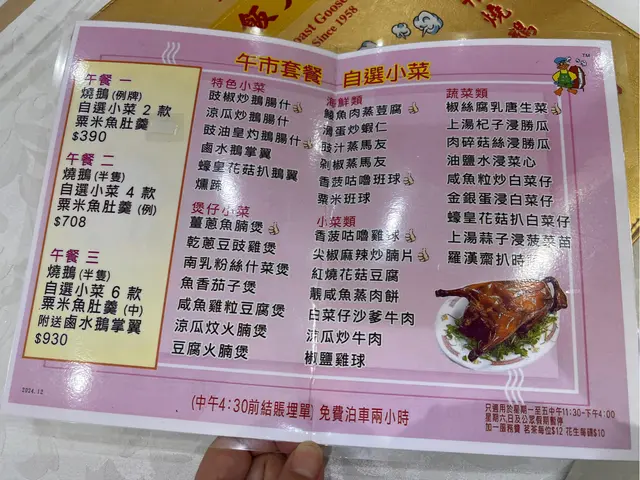 飯
燒鵝
ast Goose
Since 1958
TM
午市套餐 自選小菜
午餐 一
燒鵝(例牌)
自選小菜 2 款
粟米魚肚羹
$390
午餐 二
燒鵝(半隻)
自選小菜 4 款
粟米魚肚羹(例)
$708
午餐 三
燒鵝(半隻)
自選小菜 6 款
粟米魚肚羹(中)
附送鹵水鵝掌翼
$930
2024.12
特色小菜
豉椒炒鵝腸什
涼瓜炒鵝腸什
豉油皇灼鵝腸什
鹵水鵝掌翼
蠔皇花菇扒鵝翼
燻蹄
煲仔小菜
薑蔥魚腩煲
乾蔥豆豉雞煲
南乳粉絲什菜煲
魚香茄子煲
咸魚雞粒豆腐煲
涼瓜炆火腩煲
豆腐火腩煲
海鮮類
鯪魚肉蒸豆腐
滑蛋炒蝦仁
豉汁蒸馬友
剁椒蒸馬友
香菠咕嚕班球
粟米班球
小菜類
香菠咕嚕雞球
尖椒麻辣炒腩片
紅燒花菇豆腐
鵝咸魚蒸肉餅
白菜仔沙爹牛肉
涼瓜炒牛肉
椒鹽雞球
蔬菜類
椒絲腐乳唐生菜
上湯杞子浸勝瓜
肉碎菇絲浸勝瓜
油鹽水浸菜心
咸魚粒炒白菜仔
金銀蛋浸白菜仔
蠔皇花菇扒白菜仔
上湯蒜子浸菠菜苗
羅漢齋扒時
(中午4:30前結賬埋單) 免費泊車兩小時
只適用於星期一至五中午11:30-下午4:00
星期六日及公眾假期暫停
加一服務費 茗茶每位$12 花生每碟$10